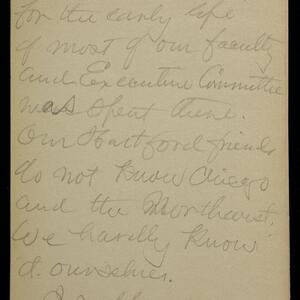 for the early life
of most of our faculty
and Executive Committee
was spent there.
Our Hartford friends
do not know Chicago
and the Northwest.
We hardly know
it ourselves.